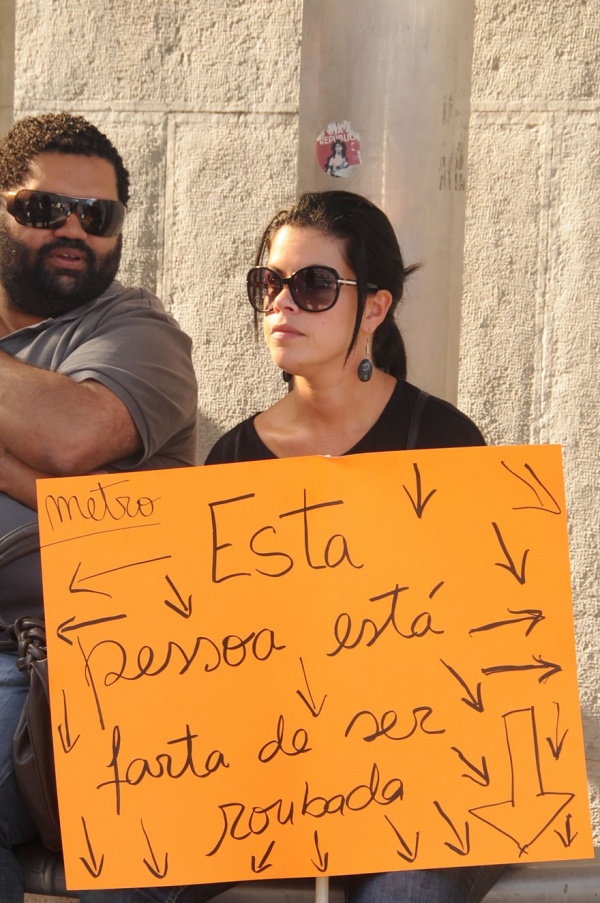 REPUBLIC
metro
Esta
pessoa está
farta de ser
roubada